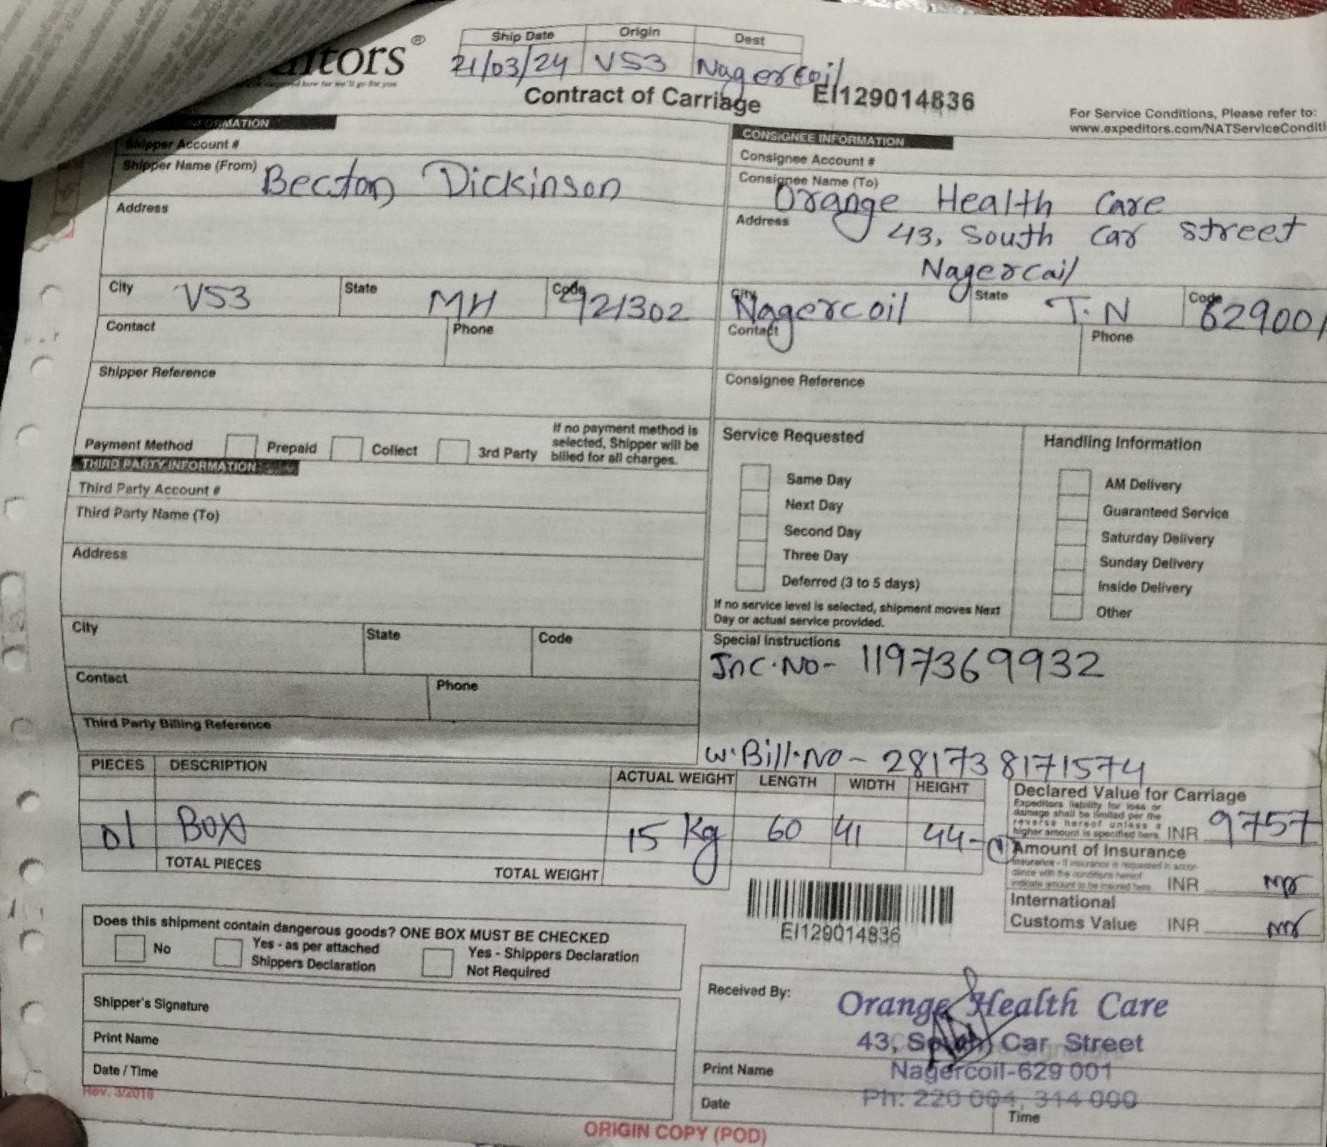 itors®
Ship Date Origin Dest
21/03/24 VS3 Nagercoil
Contract of Carriage EI129014836
For Service Conditions, Please refer to:
www.expeditors.com/NATServiceConditi
CONSIGNEE INFORMATION
Shipper Account #
Consignee Account #
Shipper Name (From) Becton Dickinson
Consignee Name (To) Orange Health Care
Address
Address 43, South Car Street
Nagercail
City VS3 State MH Code 421302
City Nagercoil State T.N Code 629001
Contact Phone
Contact Phone
Shipper Reference
Consignee Reference
Payment Method Prepaid Collect 3rd Party
If no payment method is
selected, Shipper will be
billed for all charges.
THIRD PARTY INFORMATION
Third Party Account #
Third Party Name (To)
Address
City State Code
Contact Phone
Third Party Billing Reference
Service Requested
Same Day
Next Day
Second Day
Three Day
Deferred (3 to 5 days)
If no service level is selected, shipment moves Next
Day or actual service provided.
Handling Information
AM Delivery
Guaranteed Service
Saturday Delivery
Sunday Delivery
Inside Delivery
Other
Special Instructions
Inc.No- 1197369932
W.Bill.No- 281738171574
PIECES DESCRIPTION ACTUAL WEIGHT LENGTH WIDTH HEIGHT
01 Box 15 Kg 60 41 44-①
TOTAL PIECES TOTAL WEIGHT
Declared Value for Carriage
Expeditors liability for loss or
damage shall be limited per the
reverse hereof unless a
higher amount is specified here. INR 9757
Amount of Insurance
INR
International
Customs Value INR
EI129014836
Does this shipment contain dangerous goods? ONE BOX MUST BE CHECKED
No
Yes - as per attached
Shippers Declaration
Yes - Shippers Declaration
Not Required
Shipper's Signature
Print Name
Date / Time
Rev. 3/2016
Received By:
Orange Health Care
43, South Car Street
Nagercoil-629 001
Ph: 220 004, 314 000
Print Name
Date Time
ORIGIN COPY (POD)